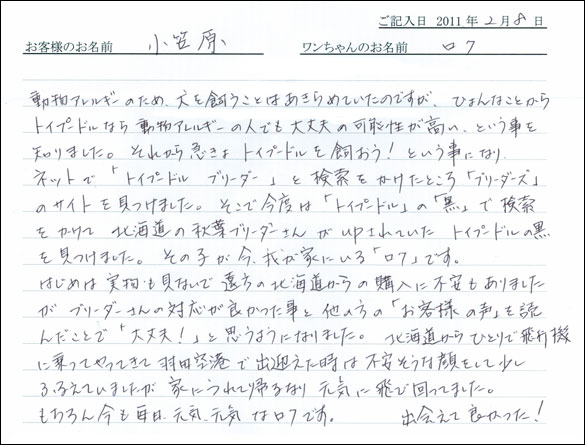 ご記入日 2011年2月8日
お客様のお名前 小笠原 ワンちゃんのお名前 ロク
動物アレルギーのため、犬を飼うことはあきらめていたのですが、ひょんなことから
トイプードルなら動物アレルギーの人でも大丈夫の可能性が高い、という事を
知りました。それから急きょトイプードルを飼おう!という事になり
ネットで「トイプードル ブリーダー」と検索をかけたところ「ブリーダーズ」
のサイトを見つけました。そこで今度は「トイプードル」の「黒」で検索
をかけて北海道の秋葉ブリーダーさんがupされていたトイプードルの黒
を見つけました。その子が今、我が家にいる「ロク」です。
はじめは実物も見ないで遠方の北海道からの購入に不安もありました
がブリーダーさんの対応が良かった事と他の方の「お客様の声」を読
んだことで「大丈夫!」と思うようになりました。北海道からひとりで飛行機
に乗ってやってきて羽田空港で出迎えた時は不安そうな顔をして少し
ふるえていましたが家につれて帰るなり元気に飛び回ってました。
もちろん今も毎日、元気、元気なロクです。 出会えて良かった!